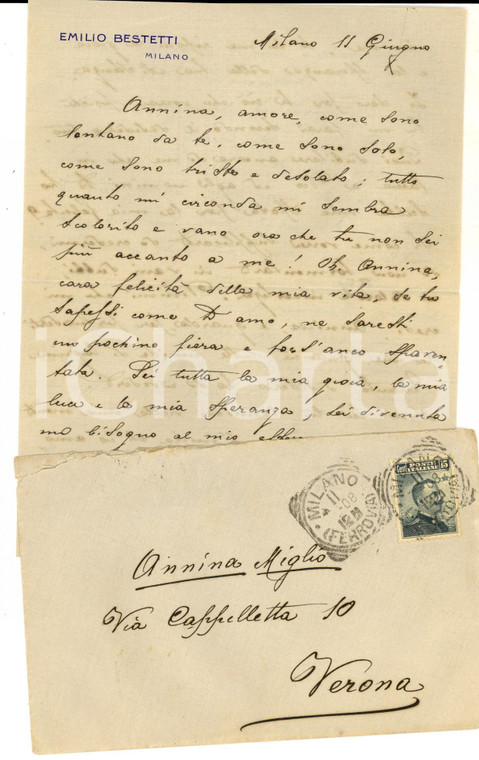 EMILIO BESTETTI
MILANO
Milano 11 Giugno
Annina, amore, come sono
lontano da te, come sono solo,
come sono triste e desolato; tutto
quanto mi circonda mi sembra
scolorito e vano ora che tu non sei
più accanto a me! Oh, Annina,
cara felicità della mia vita, se tu
sapessi come ti amo, ne saresti
un pochino fiera e fors'anco spaven
tata. Sei tutta la mia gioia, la mia
luce e la mia speranza, sei divenuta
un bisogno al mio
iCharta
MILANO
11
08
(FERROVIA)
POSTE ITALIANE
15
Annina Miglio
Via Cappelletta 10
Verona